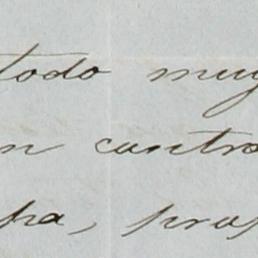 todo muy
n contra
pa, prop